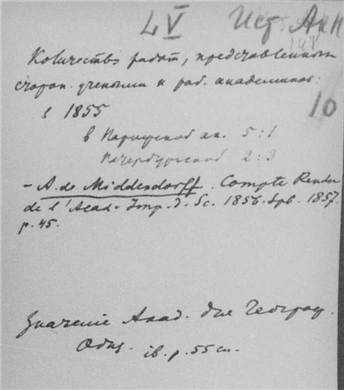 LV Ист. Ак
Количество работ, представленных
сторон. учеными и раб. академиков:
в 1855
10
в Парижской ак. 5:1
Петербургской 2:3
– A. de Middendorff. Compte Rendu
de l'Acad. Imp. d. Sc. 1856. Spb. 1857.
p. 45.
Значение Акад. для Географ.
ib. p. 55